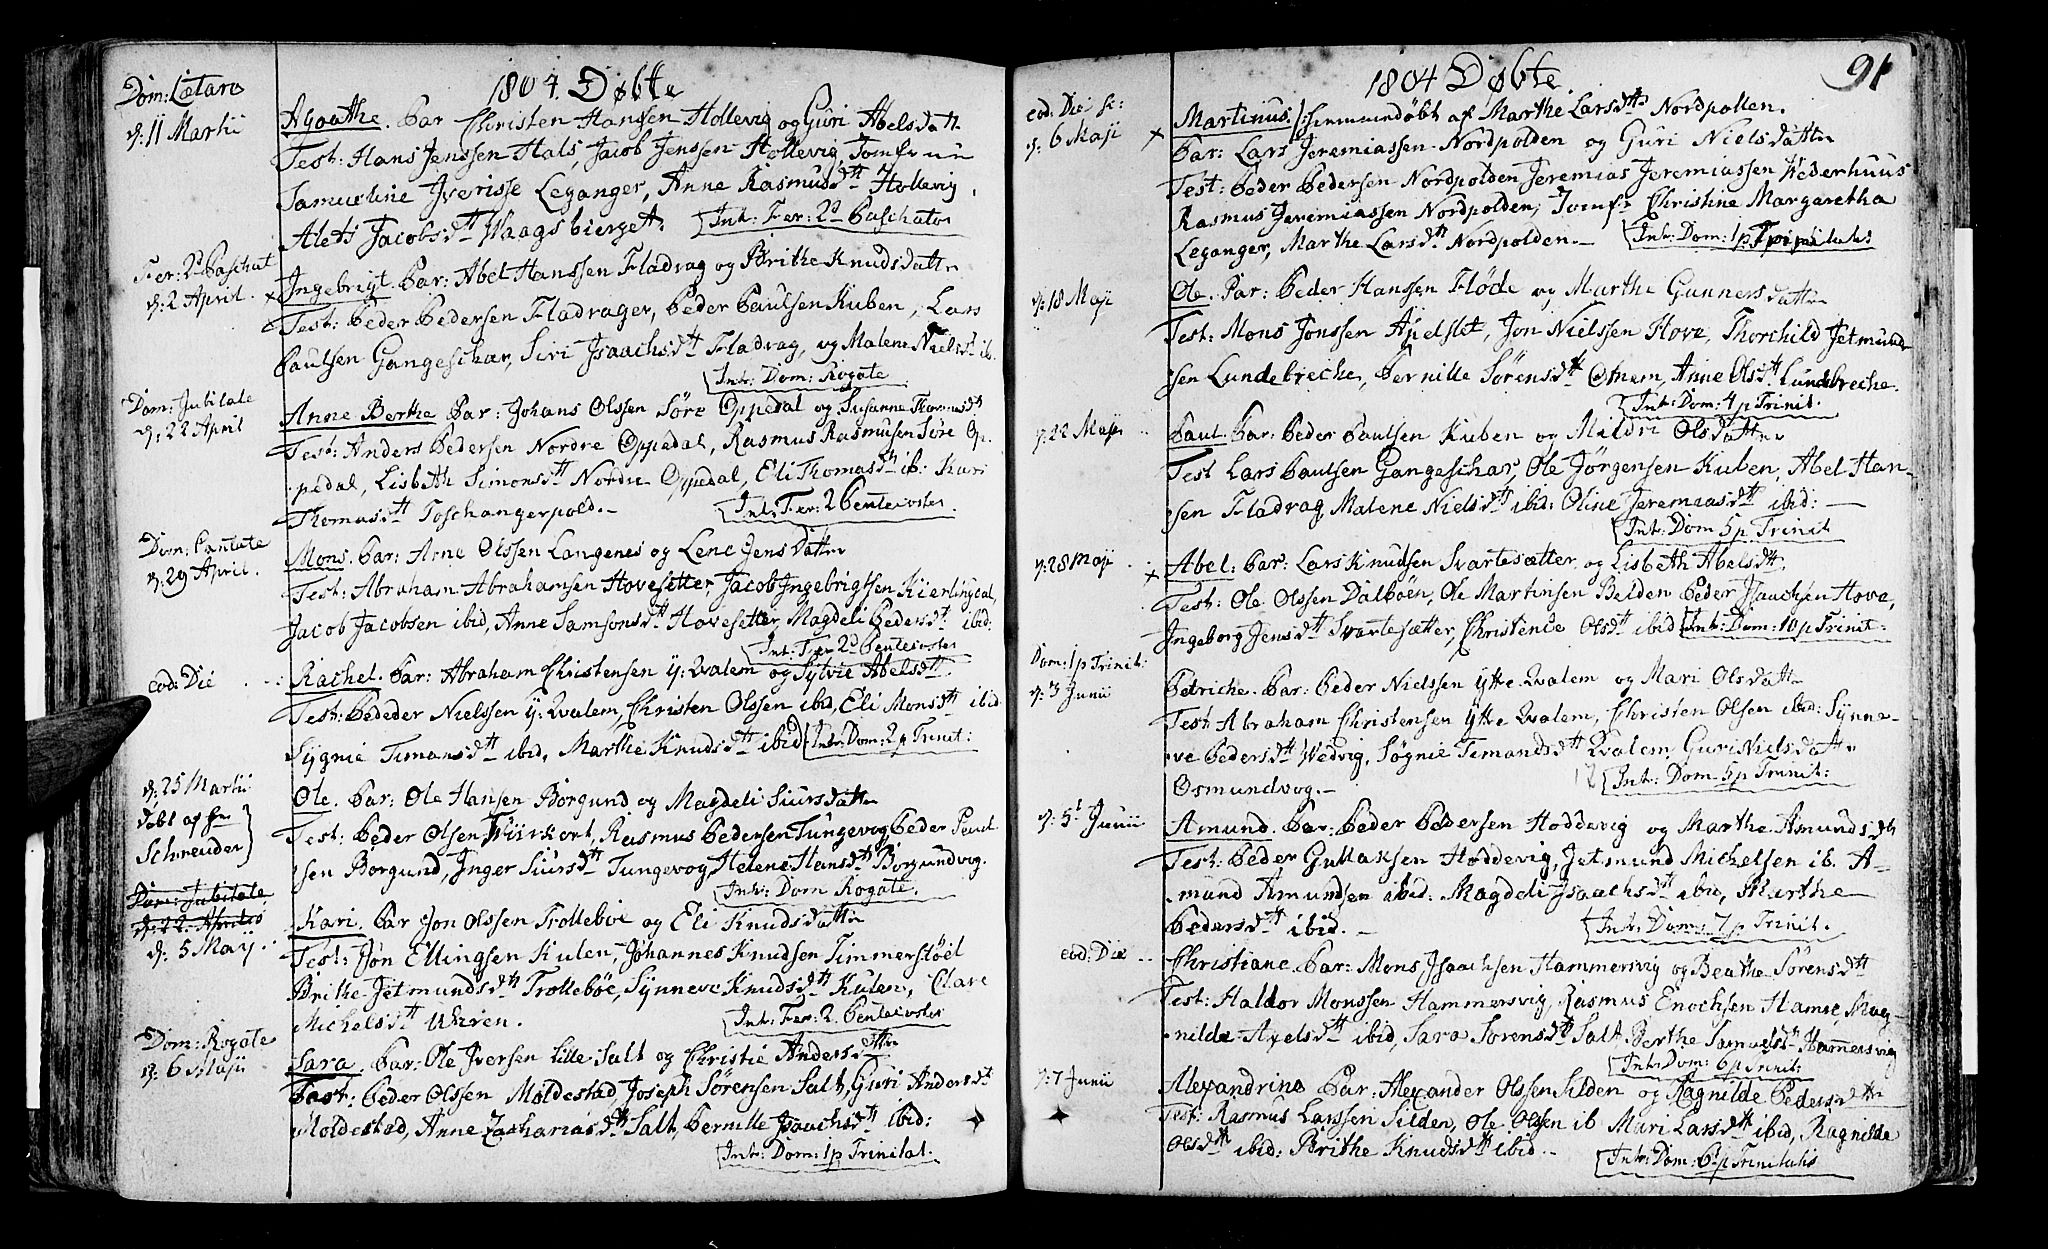 1804. Døbte
Dom: Lætare
d: 11 Martii
Agathe. Par Christen Hansen Hollevig og Guri Abelsdatt:
Test: Hans Jenssen Hals, Jacob Jenssen Hollevig, Jomfrue
Samueline Iverisse Leganger, Anne Rasmusdtt Hollevig,
Alets Jacobsdtt Waagsbierget. Intr: Fer: 2d Paschatos
Fer: 2d Paschat
d: 2 April.
Ingebrigt. Par: Abel Hanssen Fladrag og Brithe Knudsdattr
Test: Peder Pedersen Fladrager, Peder Paulsen Kuben, Lars
Paulsen Gangeschar, Siri Isaachsdtt Fladrag, og Malene Nielsd ib.
Intr: Dom: Rogate
Dom: Jubilate
d: 22 April
Anne Berthe Par: Johans Olssen Søre Oppedal og Susanne Thomasdtt
Test: Anders Pedersen Nordre Oppedal, Rasmus Rasmusen Søre Op-
pedal, Lisbeth Simonsdtt Nordre Oppedal, Eli Thomasdtt ib: Kari
Thomasdtt Toschangerpold.- Intr: Fer: 2 Pentecostes
Dom: Cantate
d: 29 April.
Mons. Par: Arne Olssen Langenes og Lene Jensdattr
Test: Abraham Abrahamsen Hovesetter, Jacob Ingebrigtsen Kierlingdal,
Jacob Jacobsen ibid, Anne Samsonsdtt Hovesetter, Magdeli Pedersdtt ibid:
Intr: Fer 2d Pentecostes
eod: Die
Rachel. Par: Abraham Christensen y: Qvalem og Sylvie Abelsdtt.
Test: Pededer Nielssen y: Qvalem, Christen Olssen ibid, Eli Monsdtt ibid
Sygnie Timansdtt ibid, Marthe Knudsdtt ibid. Intr: Dom: 2 p Trinit:
d: 25 Martii
døbt af Hr
Schreuder
Ole. Par: Ole Hansen Borgund og Magdeli Siursdattr
Test: Peder Olsen Wiirkort, Rasmus Pedersen Tungevog Peder Paul
sen Borgund, Inger Siursdtt Tungevog, Helene Hansdtt Borgundvog.
Intr: Dom Rogate.
Dom: Jubilate
d: 22. Aprilis
d: 5 Maij
Kari. Par Jon Olssen Trolleboe og Eli Knudsdattr
Test: Jon Ellingsen Kulen, Johannes Knudsen Timmerstøel
Brithe Jetmundsdtt Trolleboe, Synneve Knudsdtt Kulen, Clare
Michelsdtt Uhren. Intr: Fer: 2. Pentecostes
Dom: Rogate
d: 6 Maji
Sara. Par: Ole Iversen Lille Salt og Christie Andersdattr
Test: Peder Olssen Moldestad, Joseph Sørensen Salt, Guri Andersdtt
Moldestad, Anne Zachariasdtt Salt, Pernille Isaachsdtt ibid:
Intr: Dom: 1 p Trinitat.
1804 Døbte.
91
eod: Die
d: 6 Maji
Martinus. hiemmedøbt af Marthe Larsdtt Nordpollen.
Par: Lars Jeremiassen Nordpolden og Guri Nielsdattr
Test: Peder Pedersen Nordpolden Jeremias Jeremiassen Hederhuus
Rasmus Jeremiassen Nordpolden, Jomfr Christine Margaretha
Leganger, Marthe Larsdtt Nordpolden.- Intr: Dom: 1 p Trinitatis
d: 18 Maji
Ole. Par: Peder Hanssen Fløde og Marthe Gunnersdattr
Test: Mons Jonssen Apelset, Jon Nielssen Hove, Thorchild Jetmund
sen Lundebreche, Pernille Sørensdtt Otnem, Anne Olsdtt Lundebreche.
Intr: Dom: 4 p Trinit.
d: 22 Maji
Paul. Par: Peder Paulsen Kuben og Mildri Olsdattr
Test Lars Paulsen Gangeschar, Ole Jørgensen Kuben, Abel Han-
sen Fladrag Malene Nielsdtt ibid: Oline Jeremiasdtt ibid:
Intr: Dom 5 p Trinit
d: 28 Maji
Abel: Par: Lars Knudsen Svartesætter og Lisbeth Abelsdtt.
Test: Ole Olssen Dalbøen, Ole Martinsen Belden Peder Isaachsen Hove,
Ingeborg Jensdtt Svartesætter, Christence Olsdtt ibid Intr: Dom: 10 p Trinit:
Dom: 1 p Trinit:
d: 3 Junii
Petriche. Par: Peder Nielssen Ytte Qvalem og Mari Olsdattr
Test Abraham Christensen Ytte Qvalem, Christen Olsen ibid: Synne-
ve Pedersdtt Wedvig, Søgnie Timandsdtt Qvalem, Guri Nielsdattr
Osmundvog.- Intr: Dom 5 p Trinit:
d: 5t Junii
Amund. Par: Peder Pedersen Hoddevig og Marthe Amundsdtt
Test: Peder Gullaksen Hoddevig, Jetmund Michelsen ib. A-
mund Amundsen ibid: Magdeli Isaachsdtt ibid, Marthe
Pedersdtt ibid.- Intr: Dom: 7 p Trinit.
eod: Die
Christiane. Par: Mons Isaachsen Hammersvig og Beathe Sørensdtt
Test: Haldor Monssen Hammersvig, Rasmus Enochsen Hamre, Mag-
nilde Axelsdtt ibid, Sara Sørensdtt Salt Berthe Samuelsdtt Hammersvig
Intr: Dom: 6 p Trinit:
d: 7 Junii
Alexandrine Par: Alexander Olssen Silden og Ragnilde Pedersdattr
Test: Rasmus Larssen Silden, Ole Olssen ib Mari Larsdtt ibid, Ragnilde
Olsdtt ibid: Brithe Knudsdtt ibid.- Intr: Dom: 6 p Trinitatis